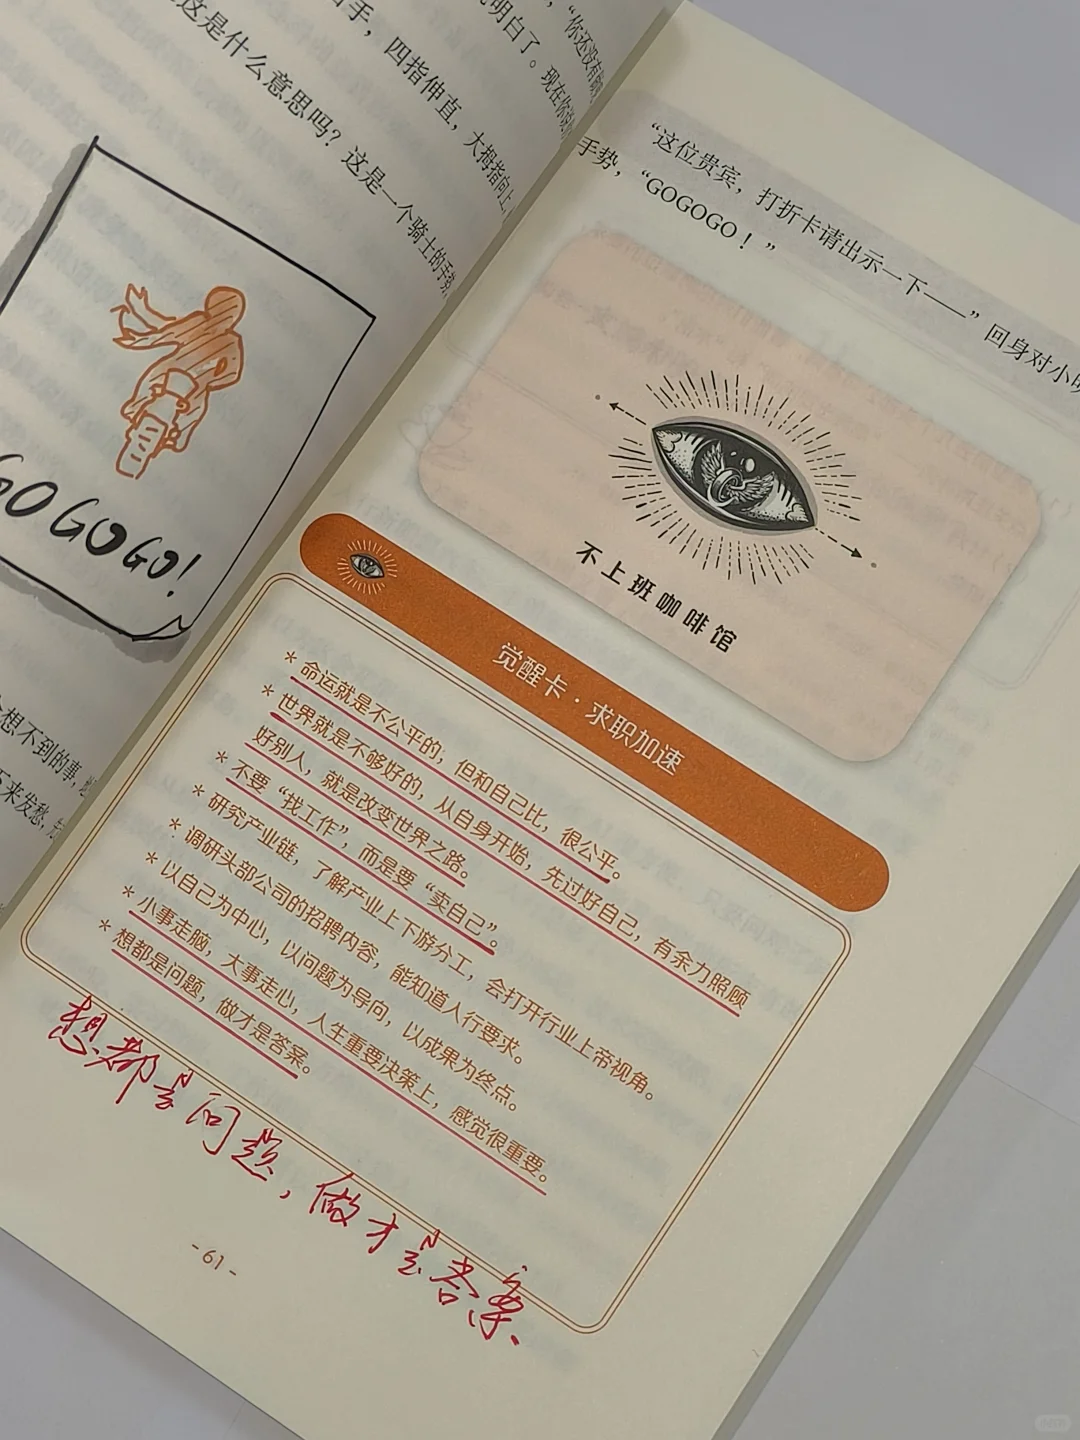 ，“你还没有
明白了。现在你
手，四指伸直，大拇指向上，
这是什么意思吗？这是一个骑士的手势，
GOGOGO!
想不到的事，
来发愁，
“这位贵宾，打折卡请出示一下——”回身对小明
手势，“GOGOGO！”
不上班咖啡馆
觉醒卡·求职加速
* 命运就是不公平的，但和自己比，很公平。
* 世界就是不够好的，从自身开始，先过好自己，有余力照顾
好别人，就是改变世界之路。
* 不要“找工作”，而是要“卖自己”。
* 研究产业链，了解产业上下游分工，会打开行业上帝视角。
* 调研头部公司的招聘内容，能知道人行要求。
* 以自己为中心，以问题为导向，以成果为终点。
* 小事走脑，大事走心，人生重要决策上，感觉很重要。
* 想都是问题，做才是答案。
想都是问题，做才是答案。
- 61 -